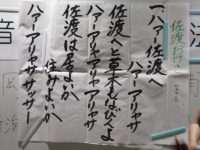 佐渡おけさ
一、ハァ 佐渡へ
ハァ アリャサ
佐渡へと草木もなびくよ
ハァ アリャアリャアリャサ
佐渡は居よいか
住みよいか
ハァ アリャサッサッサー
音